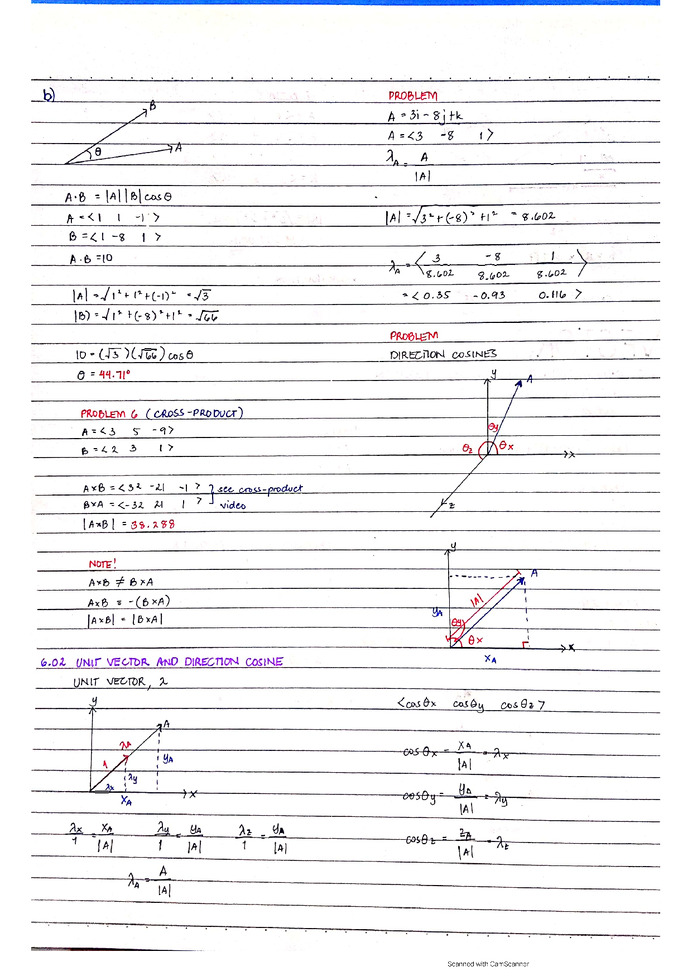 b)
B
θ
A
A·B = |A||B|cosθ
A = <1 1 -1>
B = <1 -8 1>
A·B = 10
|A| = √1² + 1² + (-1)² = √3
|B| = √1² + (-8)² + 1² = √66
10 = (√3)(√66)cosθ
θ = 44.71°
PROBLEM 6 (CROSS-PRODUCT)
A = <3 5 -9>
B = <2 3 1>
A×B = <32 -21 -1> see cross-product
B×A = <-32 21 1> video
|A×B| = 38.288
NOTE!
A×B ≠ B×A
A×B = -(B×A)
|A×B| = |B×A|
6.02 UNIT VECTOR AND DIRECTION COSINE
UNIT VECTOR, λ
y
A
λA
1
λy
yA
λx
xA
x
λx/1 = xA/|A| λy/1 = yA/|A| λz/1 = yA/|A|
λA = A/|A|
PROBLEM
A = 3i - 8j + k
A = <3 -8 1>
λA = A/|A|
|A| = √3² + (-8)² + 1² = 8.602
λA = <3/8.602 -8/8.602 1/8.602>
= <0.35 -0.93 0.116>
PROBLEM
DIRECTION COSINES
y
A
θy
θz
θx
x
z
y
A
|A|
yA
θy
θx
x
xA
<cosθx cosθy cosθz>
cosθx = xA/|A| = λx
cosθy = yA/|A| = λy
cosθz = zA/|A| = λz
Scanned with CamScanner